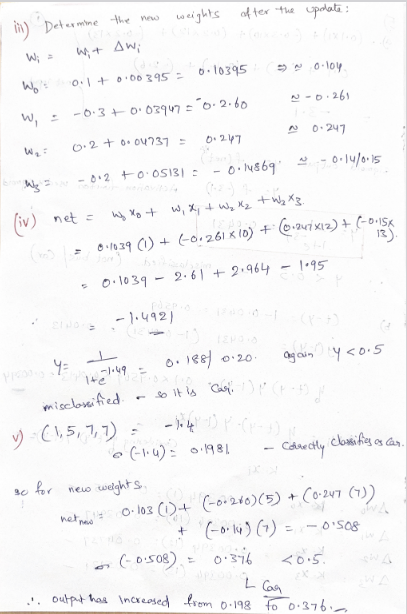 iii) Determine the new weights after the update:
Wi = Wi + ΔWi
W0 = 0.1 + 0.00395 = 0.10395 ⇒ ≈ 0.104
W1 = -0.3 + 0.03947 = -0.2.60 ≈ -0.261
W2 = 0.2 + 0.04737 = 0.247 ≈ 0.247
W3 = -0.2 + 0.05131 = -0.14869 ≈ -0.14/0.15
(iv) net = W0 X0 + W1 X1 + W2 X2 + W3 X3.
= 0.1039 (1) + (-0.261 x 10) + (0.247 x 12) + (-0.15 x 13).
= 0.1039 - 2.61 + 2.964 - 1.95
∴ = -1.4921
Y = 1/1+e^-1.49 = 0.188/ 0.20. again Y < 0.5
misclassified. - so it is Car.
v) (1, 5, 7, 7) = -1.4
σ (-1.4) = 0.1981 - Correctly classifies as Car.
so for new weights,
net new = 0.103 (1) + (-0.260)(5) + (0.247 (7))
+ (-0.14) (7) = -0.508
σ (-0.508) = 0.376 < 0.5.
Car
∴ output has increased from 0.198 to 0.376.